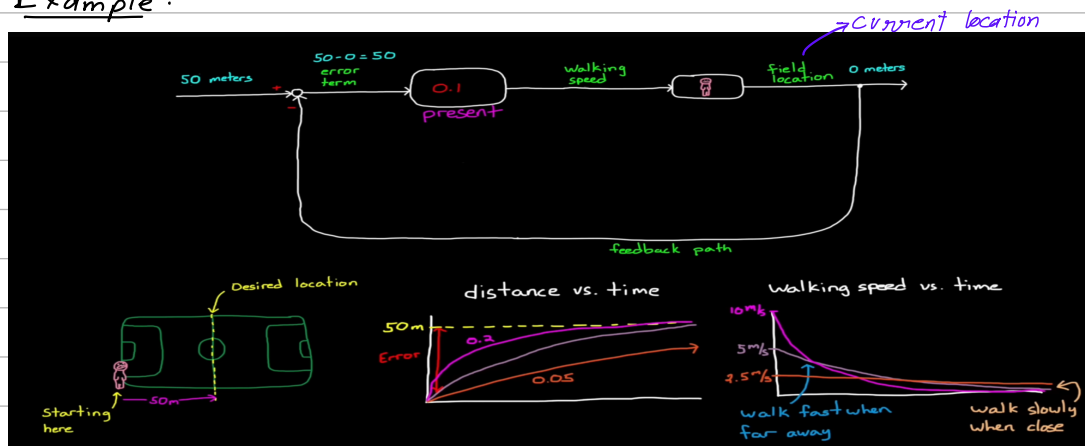 Example:
current location
50-0=50
50 meters
error
term
+
-
0.1
present
walking
speed
field
location
0 meters
feedback path
Desired location
Starting
here
50m
distance vs. time
50m
Error
0.2
0.05
walking speed vs. time
10m/s
5m/s
2.5m/s
walk fast when
far away
walk slowly
when close